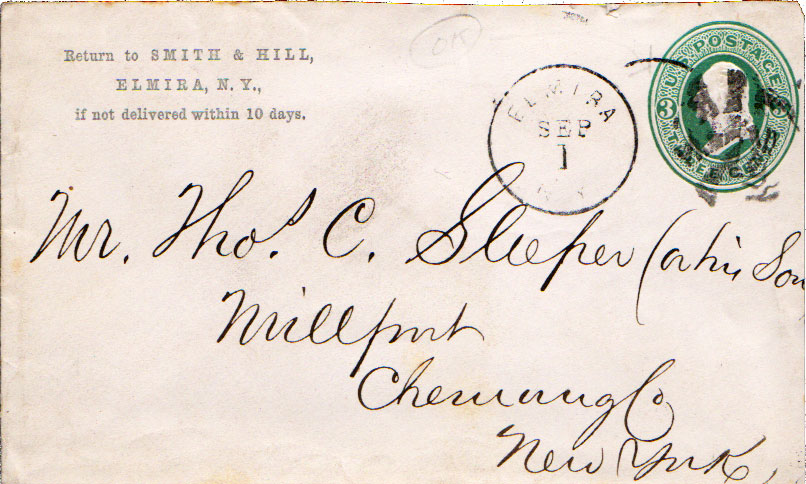 Return to SMITH & HILL,
ELMIRA, N. Y.,
if not delivered within 10 days.
OK
ELMIRA
SEP
1
N.Y.
U.S. POSTAGE
3
THREE CENTS
Mr. Thos. C. Sleeper (or his Son
Millport
Chemung Co.
New York,